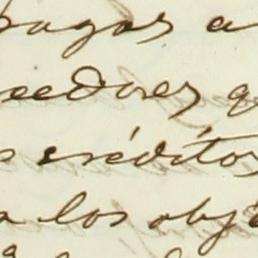 pagos a
eedores q
s créditos
a los obj